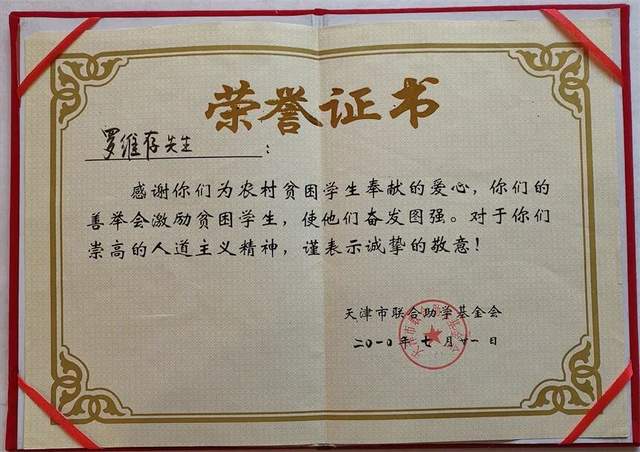 荣誉证书
罗维存先生：
感谢你们为农村贫困学生奉献的爱心，你们的
善举会激励贫困学生，使他们奋发图强。对于你们
崇高的人道主义精神，谨表示诚挚的敬意！
天津市联合助学基金会
二〇一〇年七月廿一日